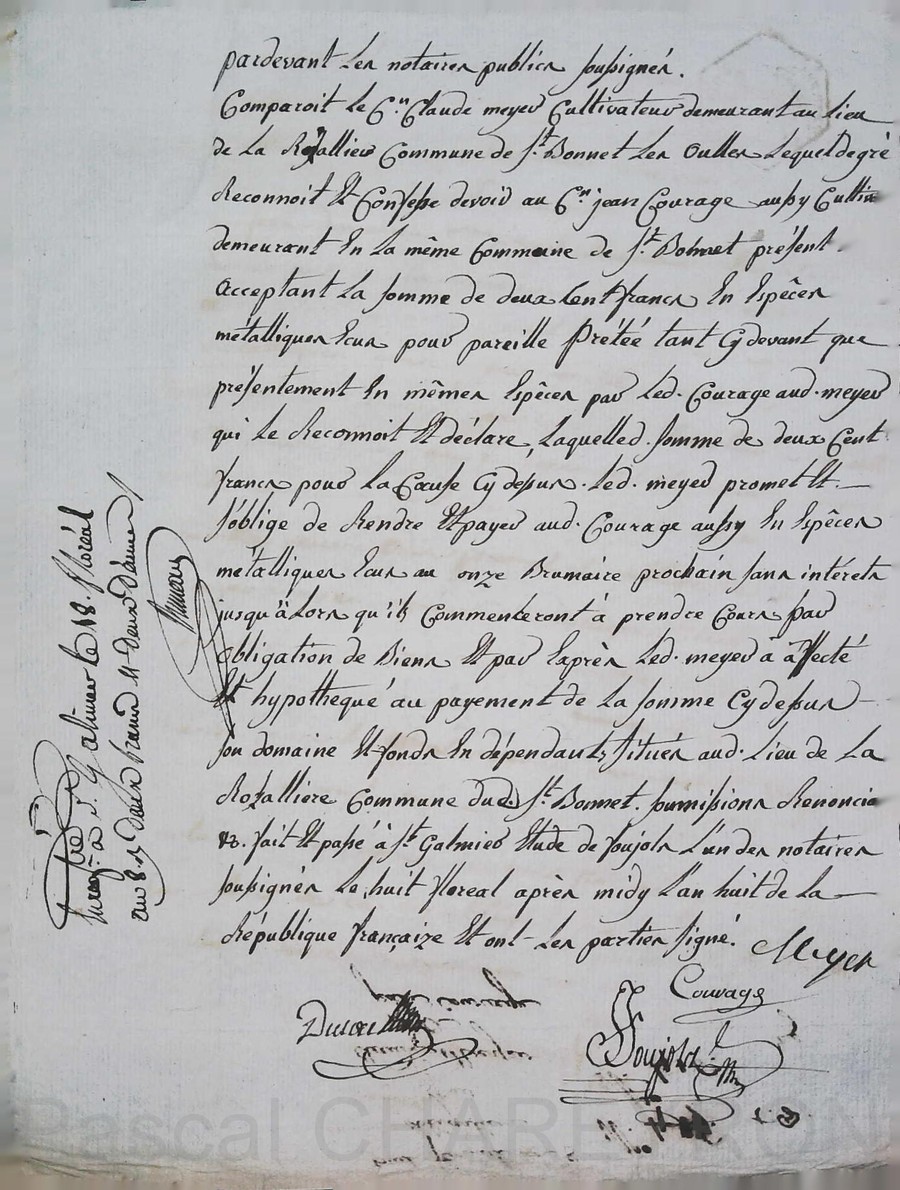 pardevant Les notaires publics soussignés.
Comparoit Le C.en Claude meyer Cultivateur demeurant au Lieu
de La Rozallier Commune de St. Bonnet Les Oulles Lequel de gré
Reconnoit Et Confesse devoir au C.en jean Courage aussy Cultiv
demeurant En La même Commune de St. Bonnet présent
Acceptant La somme de deux Cent francs En Espêces
métalliques Ecus pour pareille Prétéé tant Cydevant que
présentement En mêmes Espêces par Led. Courage aud. meyer
qui Le Reconnoit Et déclare, Laquelled. somme de deux Cent
francs pour La Cause Cydessus. Led. meyer promet Et
s'oblige de Rendre Et payer aud. Courage aussy En Espêces
métalliques Ecus au onze Brumaire prochain sans intérets
jusqu'àLors qu'ils Commenceront à prendre Cours par
obligation de Biens Et par Exprès Led. meyer a affecté
Et hypothequé au payement de La somme Cydessus
son domaine Et fonds En dépendants, situés aud. Lieu de La
Rozalliere Commune dud. St. Bonnet. soumissions Renoncia
&. fait Et passé à St Galmier Etude de Poujols L'un des notaires
soussignés Le huit floreal après midy L'an huit de La
République française Et ont Les parties signé. Meyer
Courage
Poujols
Enregistré à St. Galmier le 18. floréal
an 8. Reçu deux francs et deux décimes